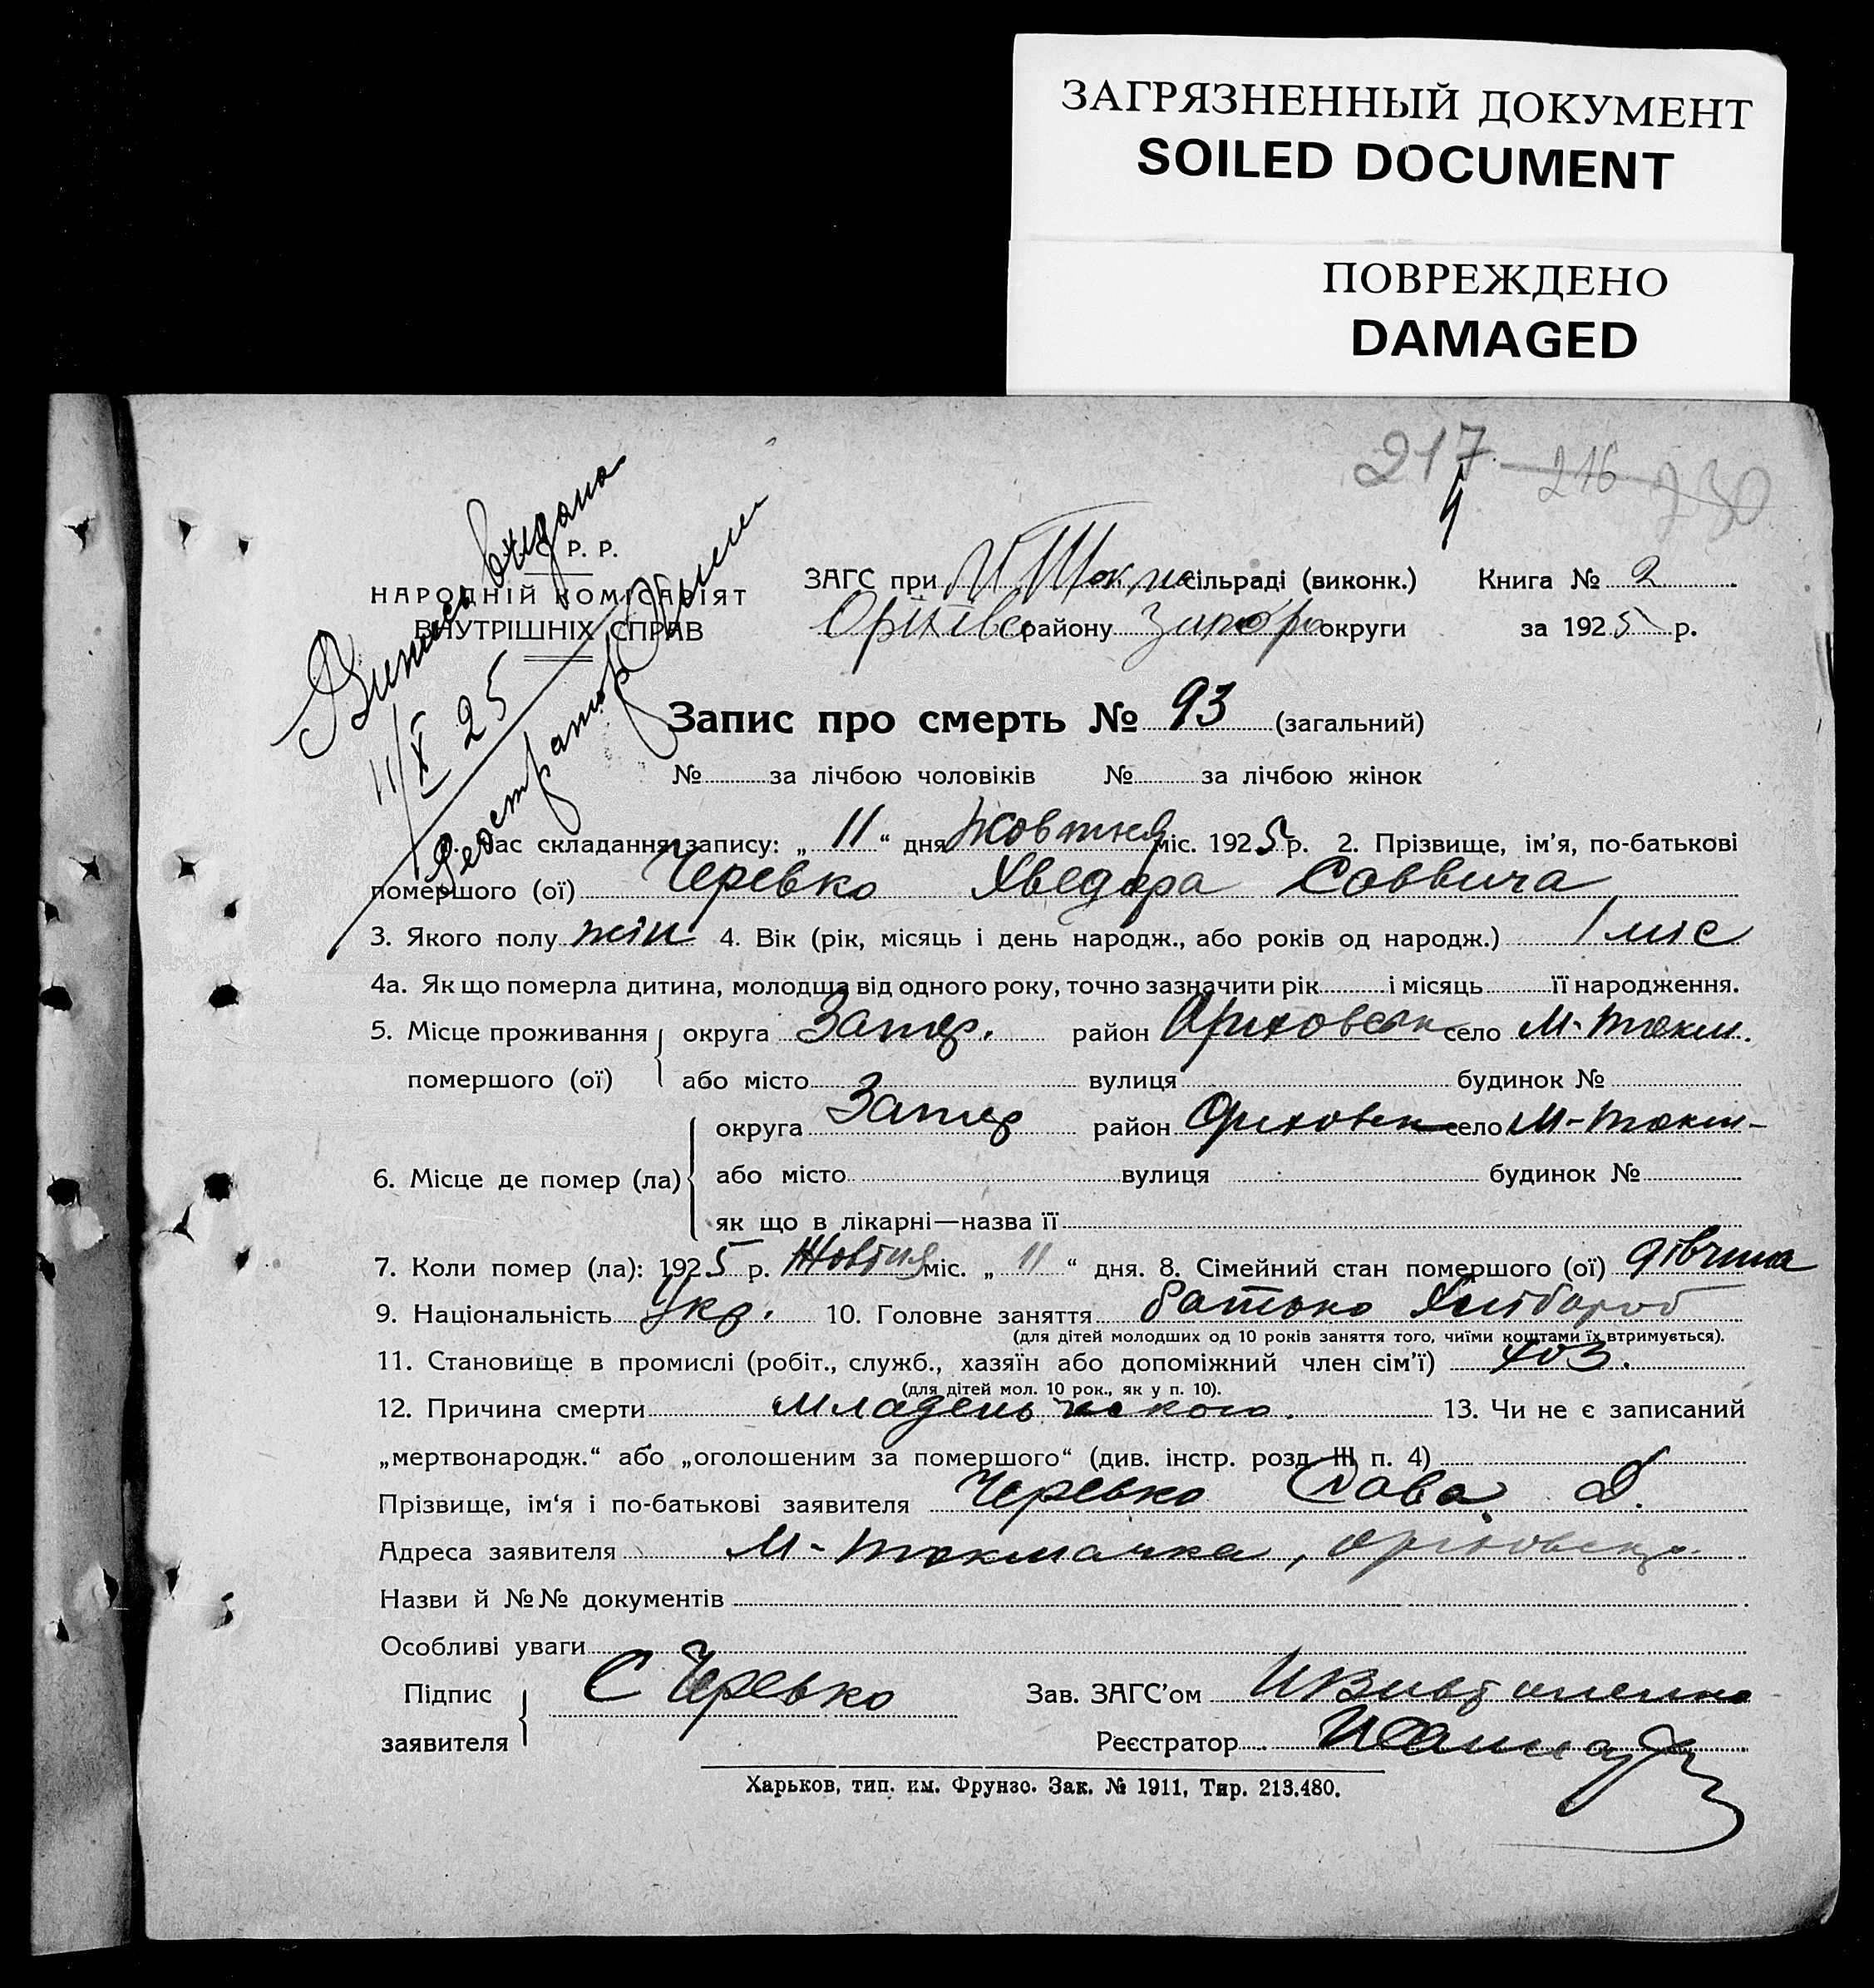 ЗАГРЯЗНЕННЫЙ ДОКУМЕНТ
SOILED DOCUMENT
ПОВРЕЖДЕНО
DAMAGED
217 216 230
4
Випись видана
11/X 25
Реєстратор
С. Р. Р.
НАРОДНІЙ КОМІСАРІЯТ
ВНУТРІШНІХ СПРАВ
ЗАГС при М Токм сільраді (виконк.) Книга № 2
Оріхівс району Запор округи за 1925 р.
Запис про смерть № 93 (загальний)
№ за лічбою чоловіків № за лічбою жінок
1. Час складання запису: „ 11 “ дня Жовтня міс. 1925 р. 2. Прізвище, ім'я, по-батькові
помершого (ої) Черевко Хведора Саввича
3. Якого полу жін 4. Вік (рік, місяць і день народж., або років од народж.) 1 міс
4а. Як що померла дитина, молодша від одного року, точно зазначити рік і місяць її народження.
5. Місце проживання округа Запор. район Ориховськ село М-Токм.
помершого (ої) або місто вулиця будинок №
округа Запор район Ориховськ село М-Токм-
6. Місце де помер (ла) або місто вулиця будинок №
як що в лікарні—назва її
7. Коли помер (ла): 1925 р. Жовтня міс. „ 11 “ дня. 8. Сімейний стан помершого (ої) дівчина
9. Національність Укр. 10. Головне заняття батько Хлібороб
(для дітей молодших од 10 років заняття того, чиїми коштами їх втримується).
11. Становище в промислі (робіт., служб., хазяїн або допоміжний член сім'ї) хоз.
(для дітей мол. 10 рок., як у п. 10).
12. Причина смерти Младенческого. 13. Чи не є записаний
„мертвонародж.“ або „оголошеним за помершого“ (див. інстр. розд III п. 4)
Прізвище, ім'я і по-батькові заявителя Черевко Сава Д.
Адреса заявителя М-Токмачка,
Назви й №№ документів
Особливі уваги
Підпис С Черевко Зав. ЗАГС'ом
заявителя Реєстратор
Харьков, тип. им. Фрунзе. Зак. № 1911, Тир. 213.480.